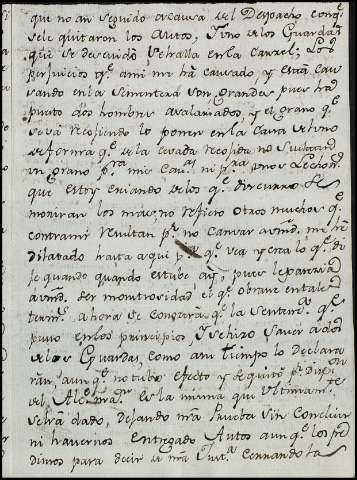 qui no an seguido a causa del Despacho, conq.e
se le quitaron los Autos, Y uno de los Guardas
que se descuidó se halla en la Carzel; Los
perjuicios q.e a mi me há causado, y está cau
sando en la Sementera son grandes, pues há
puesto dos hombres asalariados, y el grano q.e
se vá recojiendo lo ponen en la Casa
de forma q.e de la cevada recojida no
un grano p.ra mis ni p.ra unos Lechon.s
que estoy criando de los q.e discurro se
moriran los mas; no refiero otros muchos q.e
contra mi resultan p.r no cansar a vmd. me hé
dilatado hasta aqui p.ra q.e vea, y crea lo q.e di
je quando quando estube ay, pues le parecia
a vmd. ser monstruosidad el q.e obrase en tales
term.s ahora se comprara la Sentencia q.e
puso en los principios, Y se hizo saver a dos
de los Guardas, como a un tiempo lo declara
ran, aunq.e no tubo efecto y se quitó p.r Disp.on
del Alc.e es la misma que Ultimam.te
se há dado, dejando mra Prueba sin Concluir
ni havernos entregado Autos aunq.e los pe
dimos para decir de mra Just.a Cerrando la